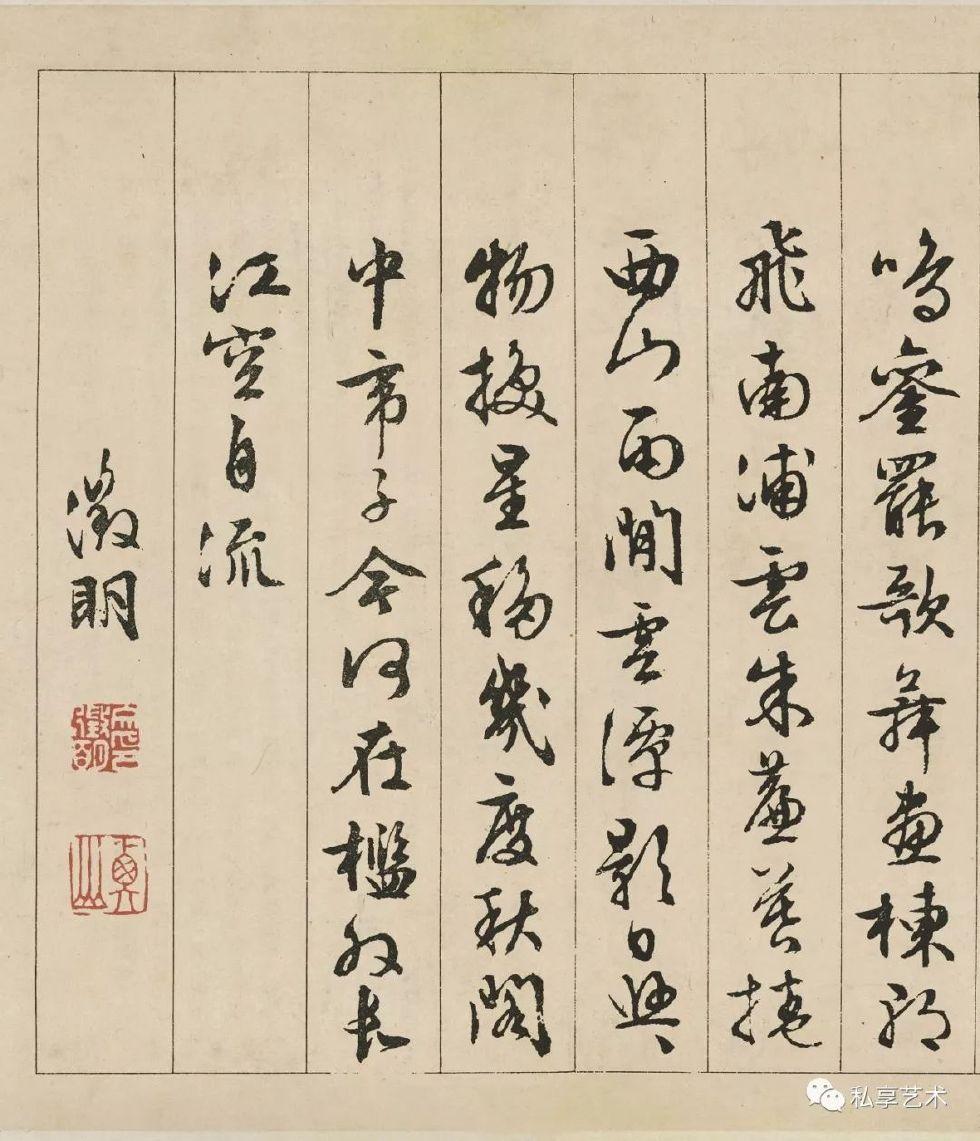 鳴鑾罷歌舞畫棟朝
飛南浦雲朱簾暮捲
西山雨閒雲潭影日悠悠
物換星移幾度秋閣
中帝子今何在檻外長
江空自流
徵明
衡山
私享艺术